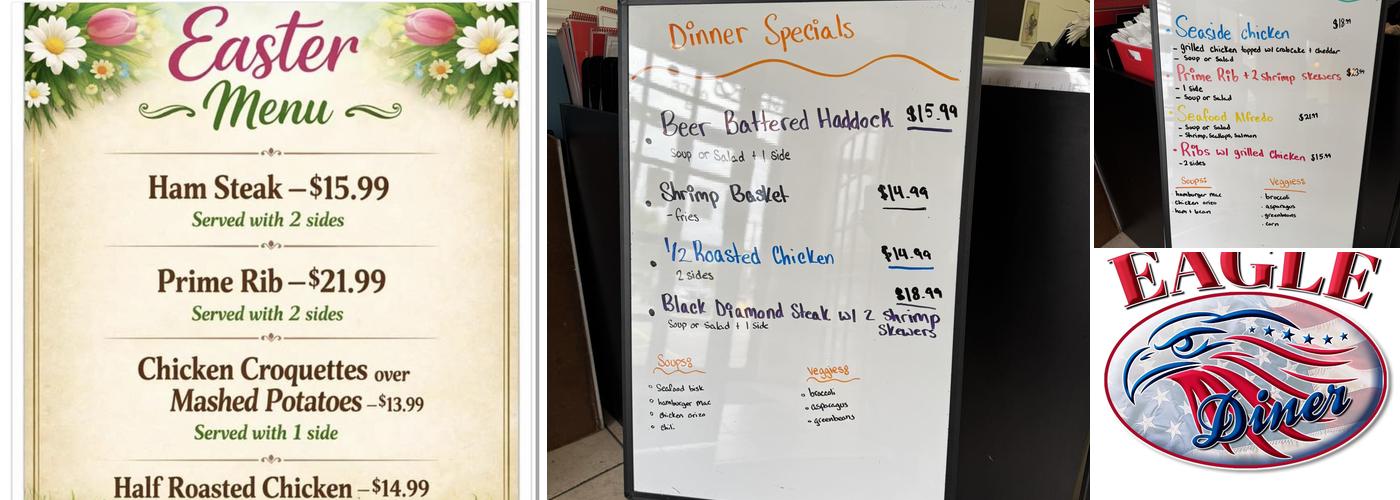 Easter
Menu
Ham Steak – $15.99
Served with 2 sides
Prime Rib – $21.99
Served with 2 sides
Chicken Croquettes over
Mashed Potatoes – $13.99
Served with 1 side
Half Roasted Chicken – $14.99
Dinner Specials
Beer Battered Haddock $15.99
Soup or Salad + 1 Side
Shrimp Basket $14.99
- fries
1/2 Roasted Chicken $14.99
2 sides
$18.99
Black Diamond Steak w/ 2 Shrimp
Skewers
Soup or Salad + 1 Side
Soups:
Seafood bisk
hamburger mac
Chicken orizo
Chili
Veggies:
broccoli
asparagus
greenbeans
Seaside Chicken $18.99
- grilled chicken topped w/ crabcake + cheddar
- Soup or Salad
Prime Rib + 2 shrimp skewers $23.99
- 1 side
- Soup or Salad
Seafood Alfredo $21.99
- Soup or Salad
- Shrimp, Scallops, Salmon
Ribs w/ grilled Chicken $15.99
- 2 sides
Soups:
hamburger mac
Chicken orizo
ham + bean
Veggies:
broccoli
asparagus
greenbeans
corn
EAGLE
Diner